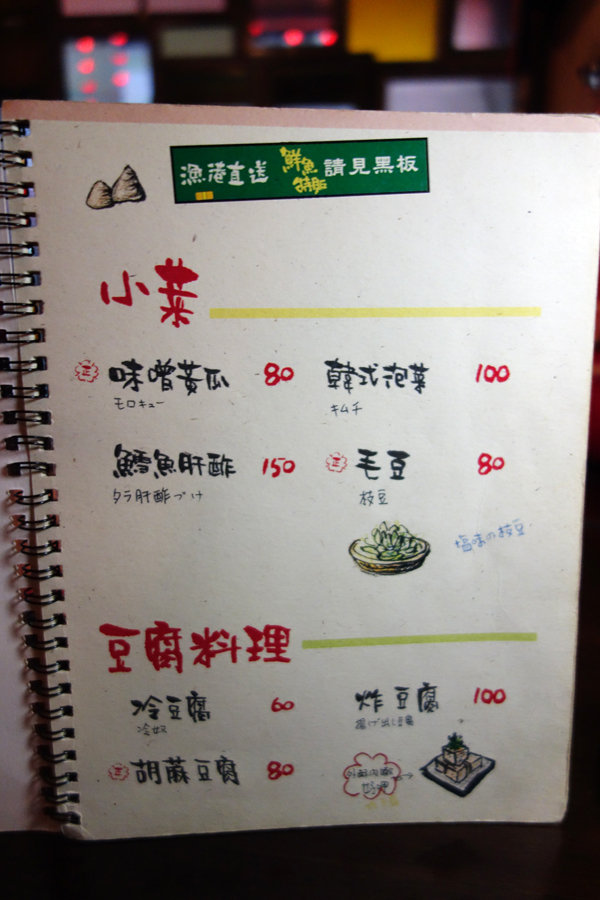 漁港直送 鮮魚 請見黑板
小菜
正 味噌黃瓜 80 韓式泡菜 100
モロキュー キムチ
鱈魚肝酢 150 正 毛豆 80
タラ肝酢づけ 枝豆
塩味の枝豆
豆腐料理
冷豆腐 60 炸豆腐 100
冷奴 揚げ出し豆腐
正 胡蔴豆腐 80
外酥內嫩
好理